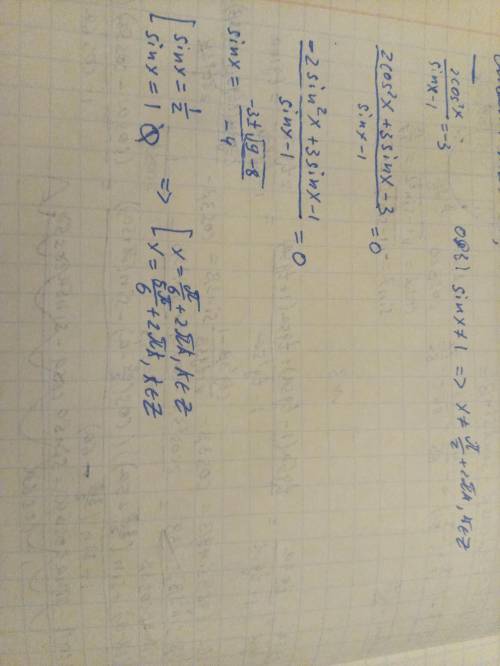 2cos²x / sinx-1 = -3   ОДЗ) sinx≠1 => x≠ π/2 + 2πk, k∈Z
2cos²x + 3sinx - 3 / sinx-1 = 0
-2sin²x + 3sinx - 1 / sinx-1 = 0
sinx = -3±√9-8 / -4
[ sinx = 1/2   => [ x = π/6 + 2πk, k∈Z
[ sinx = 1 Ø   [ x = 5π/6 + 2πk, k∈Z